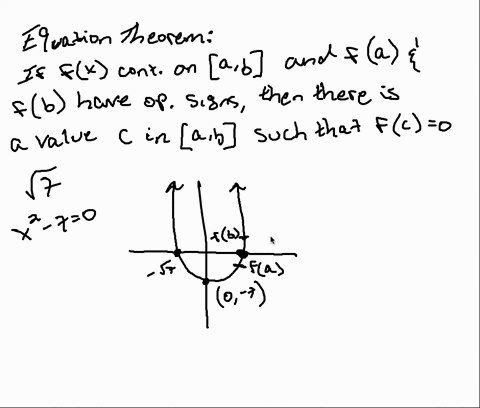 Equation Theorem:
If f(x) cont. on [a,b] and f(a) &
f(b) have op. signs, then there is
a value c in [a,b] such that f(c)=0
√7
x²-7=0
f(b)
-√7
f(a)
(0,-7)